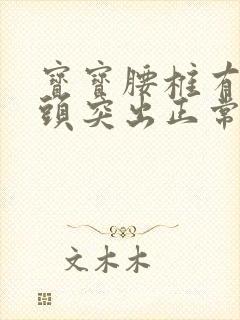 寶寶腰柱有
頭突出正常
文木木